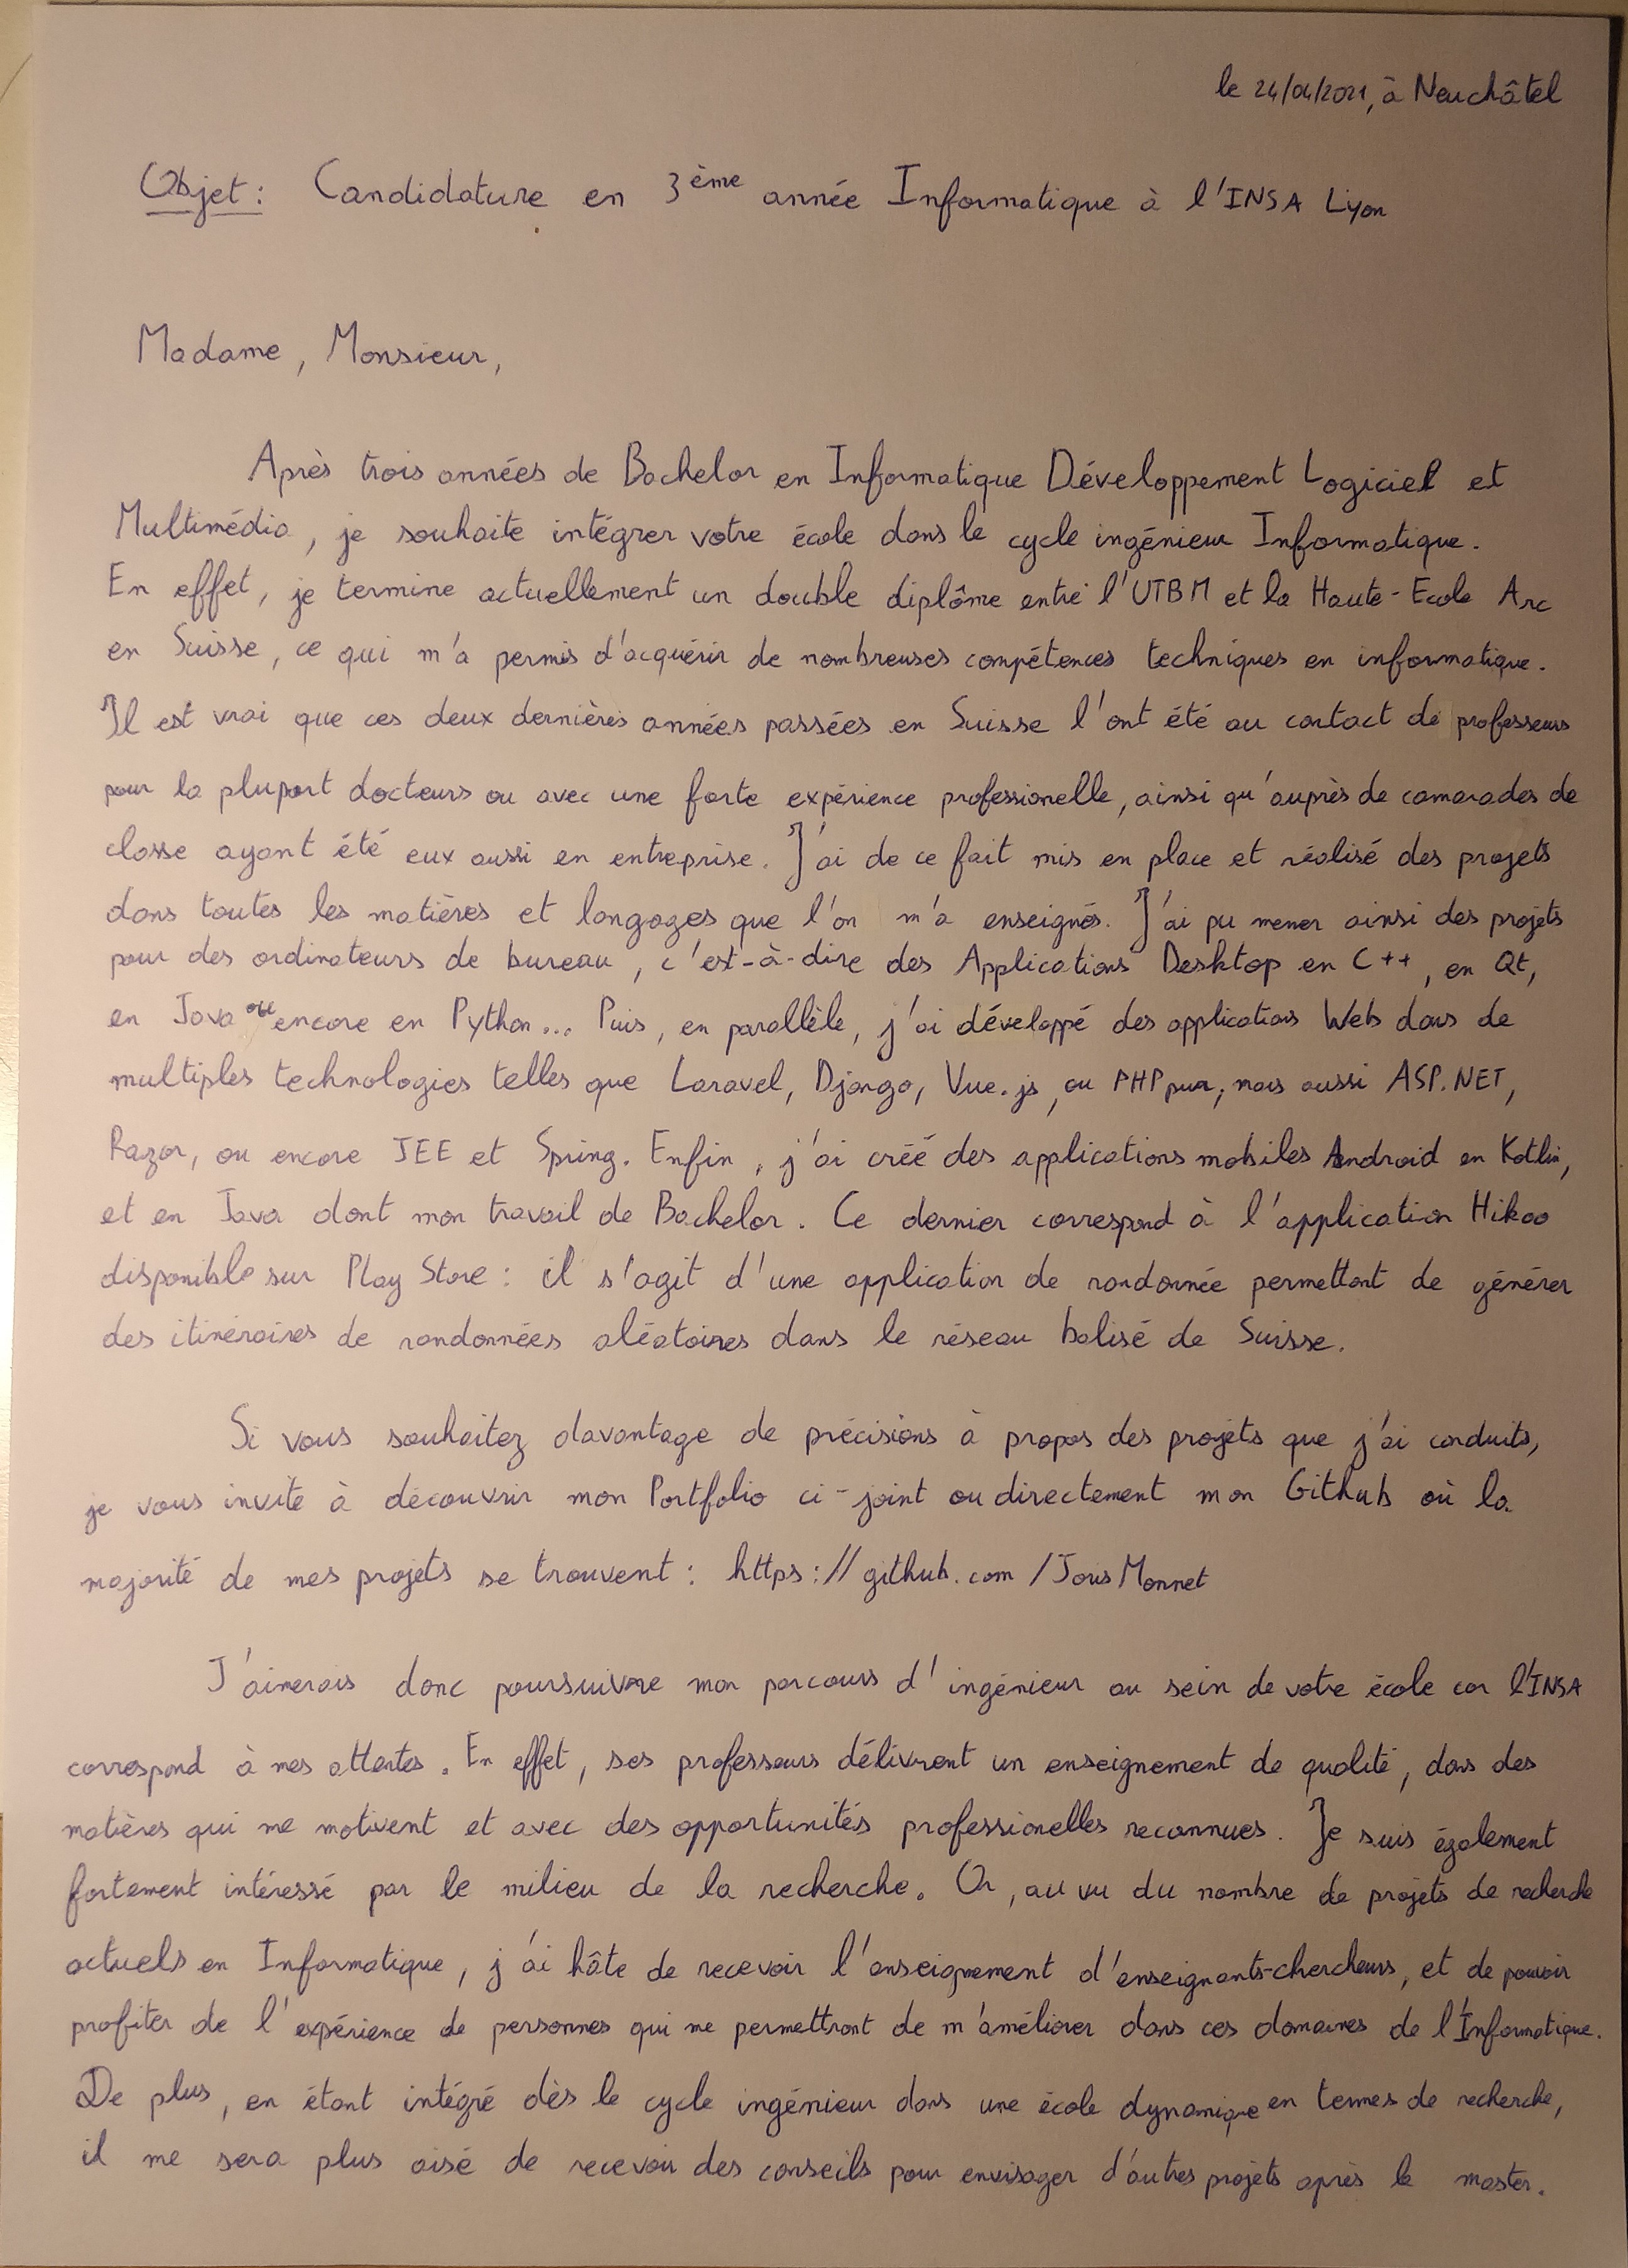 le 24/04/2021, à Neuchâtel
Objet : Candidature en 3ème année Informatique à l'INSA Lyon
Madame, Monsieur,
Après trois années de Bachelor en Informatique Développement Logiciel et
Multimédia, je souhaite intégrer votre école dans le cycle ingénieur Informatique.
En effet, je termine actuellement un double diplôme entre l'UTBM et la Haute-Ecole Arc
en Suisse, ce qui m'a permis d'acquérir de nombreuses compétences techniques en informatique.
Il est vrai que ces deux dernières années passées en Suisse l'ont été au contact de professeurs
pour la plupart docteurs ou avec une forte expérience professionelle, ainsi qu'auprès de camarades de
classe ayant été eux aussi en entreprise. J'ai de ce fait mis en place et réalisé des projets
dans toutes les matières et langages que l'on m'a enseignés. J'ai pu mener ainsi des projets
pour des ordinateurs de bureau, c'est-à-dire des Applications Desktop en C++, en Qt,
en Java ou encore en Python... Puis, en parallèle, j'ai développé des applications Web dans de
multiples technologies telles que Laravel, Django, Vue.js, ou PHP pur, mais aussi ASP.NET,
Razor, ou encore JEE et Spring. Enfin, j'ai créé des applications mobiles Android en Kotlin,
et en Java dont mon travail de Bachelor. Ce dernier correspond à l'application Hikoo
disponible sur Play Store : il s'agit d'une application de randonnée permettant de générer
des itinéraires de randonnées aléatoires dans le réseau balisé de Suisse.
Si vous souhaitez davantage de précisions à propos des projets que j'ai conduits,
je vous invite à découvrir mon Portfolio ci-joint ou directement mon Github où la
majorité de mes projets se trouvent : https://github.com/JorisMonnet
J'aimerais donc poursuivre mon parcours d'ingénieur au sein de votre école car l'INSA
correspond à mes attentes. En effet, ses professeurs délivrent un enseignement de qualité, dans des
matières qui me motivent et avec des opportunités professionelles reconnues. Je suis également
fortement intéressé par le milieu de la recherche. Or, au vu du nombre de projets de recherche
actuels en Informatique, j'ai hâte de recevoir l'enseignement d'enseignants-chercheurs, et de pouvoir
profiter de l'expérience de personnes qui me permettront de m'améliorer dans ces domaines de l'Informatique.
De plus, en étant intégré dès le cycle ingénieur dans une école dynamique en termes de recherche,
il me sera plus aisé de recevoir des conseils pour envisager d'autres projets après le master.